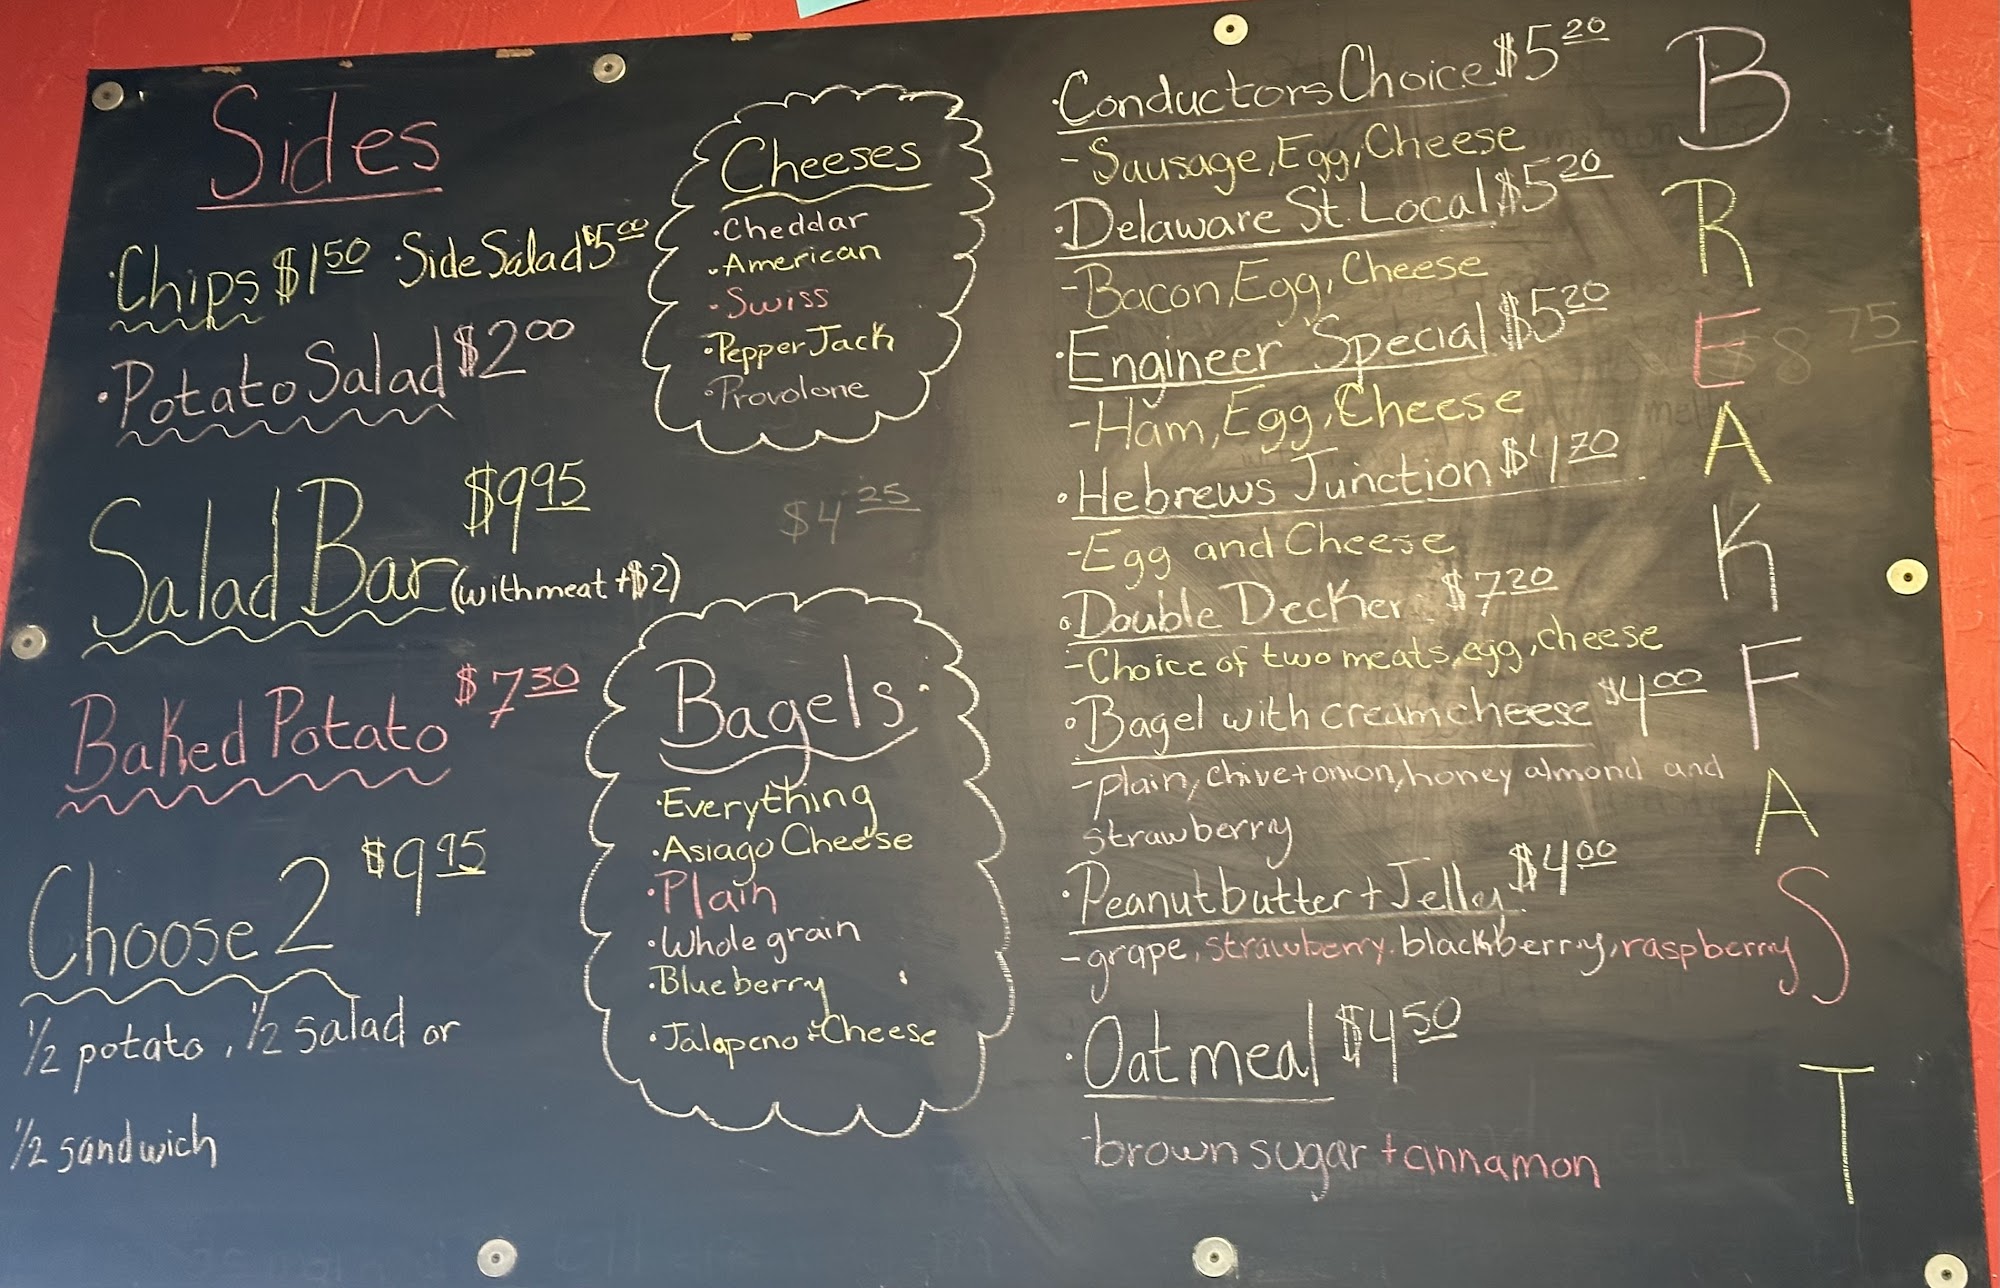 Sides
·Chips $1.50 ·Side Salad $5.00
·Potato Salad $2.00
Salad Bar $9.95
(with meat +$2)
Baked Potato $7.30
Choose 2 $9.95
1/2 potato, 1/2 salad or
1/2 sandwich
Cheeses
·Cheddar
·American
·Swiss
·Pepper Jack
·Provolone
$4.25
Bagels
·Everything
·Asiago Cheese
·Plain
·Whole grain
·Blueberry
·Jalapeno + Cheese
BREAKFAST
·Conductors Choice $5.20
-Sausage, Egg, Cheese
·Delaware St. Local $5.20
-Bacon, Egg, Cheese
·Engineer Special $5.20
-Ham, Egg, Cheese
·Hebrews Junction $4.70
-Egg and Cheese
·Double Decker $7.20
-Choice of two meats, egg, cheese
·Bagel with creamcheese $4.00
-plain, chive+onion, honey almond and
strawberry
·Peanutbutter + Jelly $4.00
-grape, strawberry, blackberry, raspberry
·Oatmeal $4.50
-brown sugar + cinnamon
$8.75